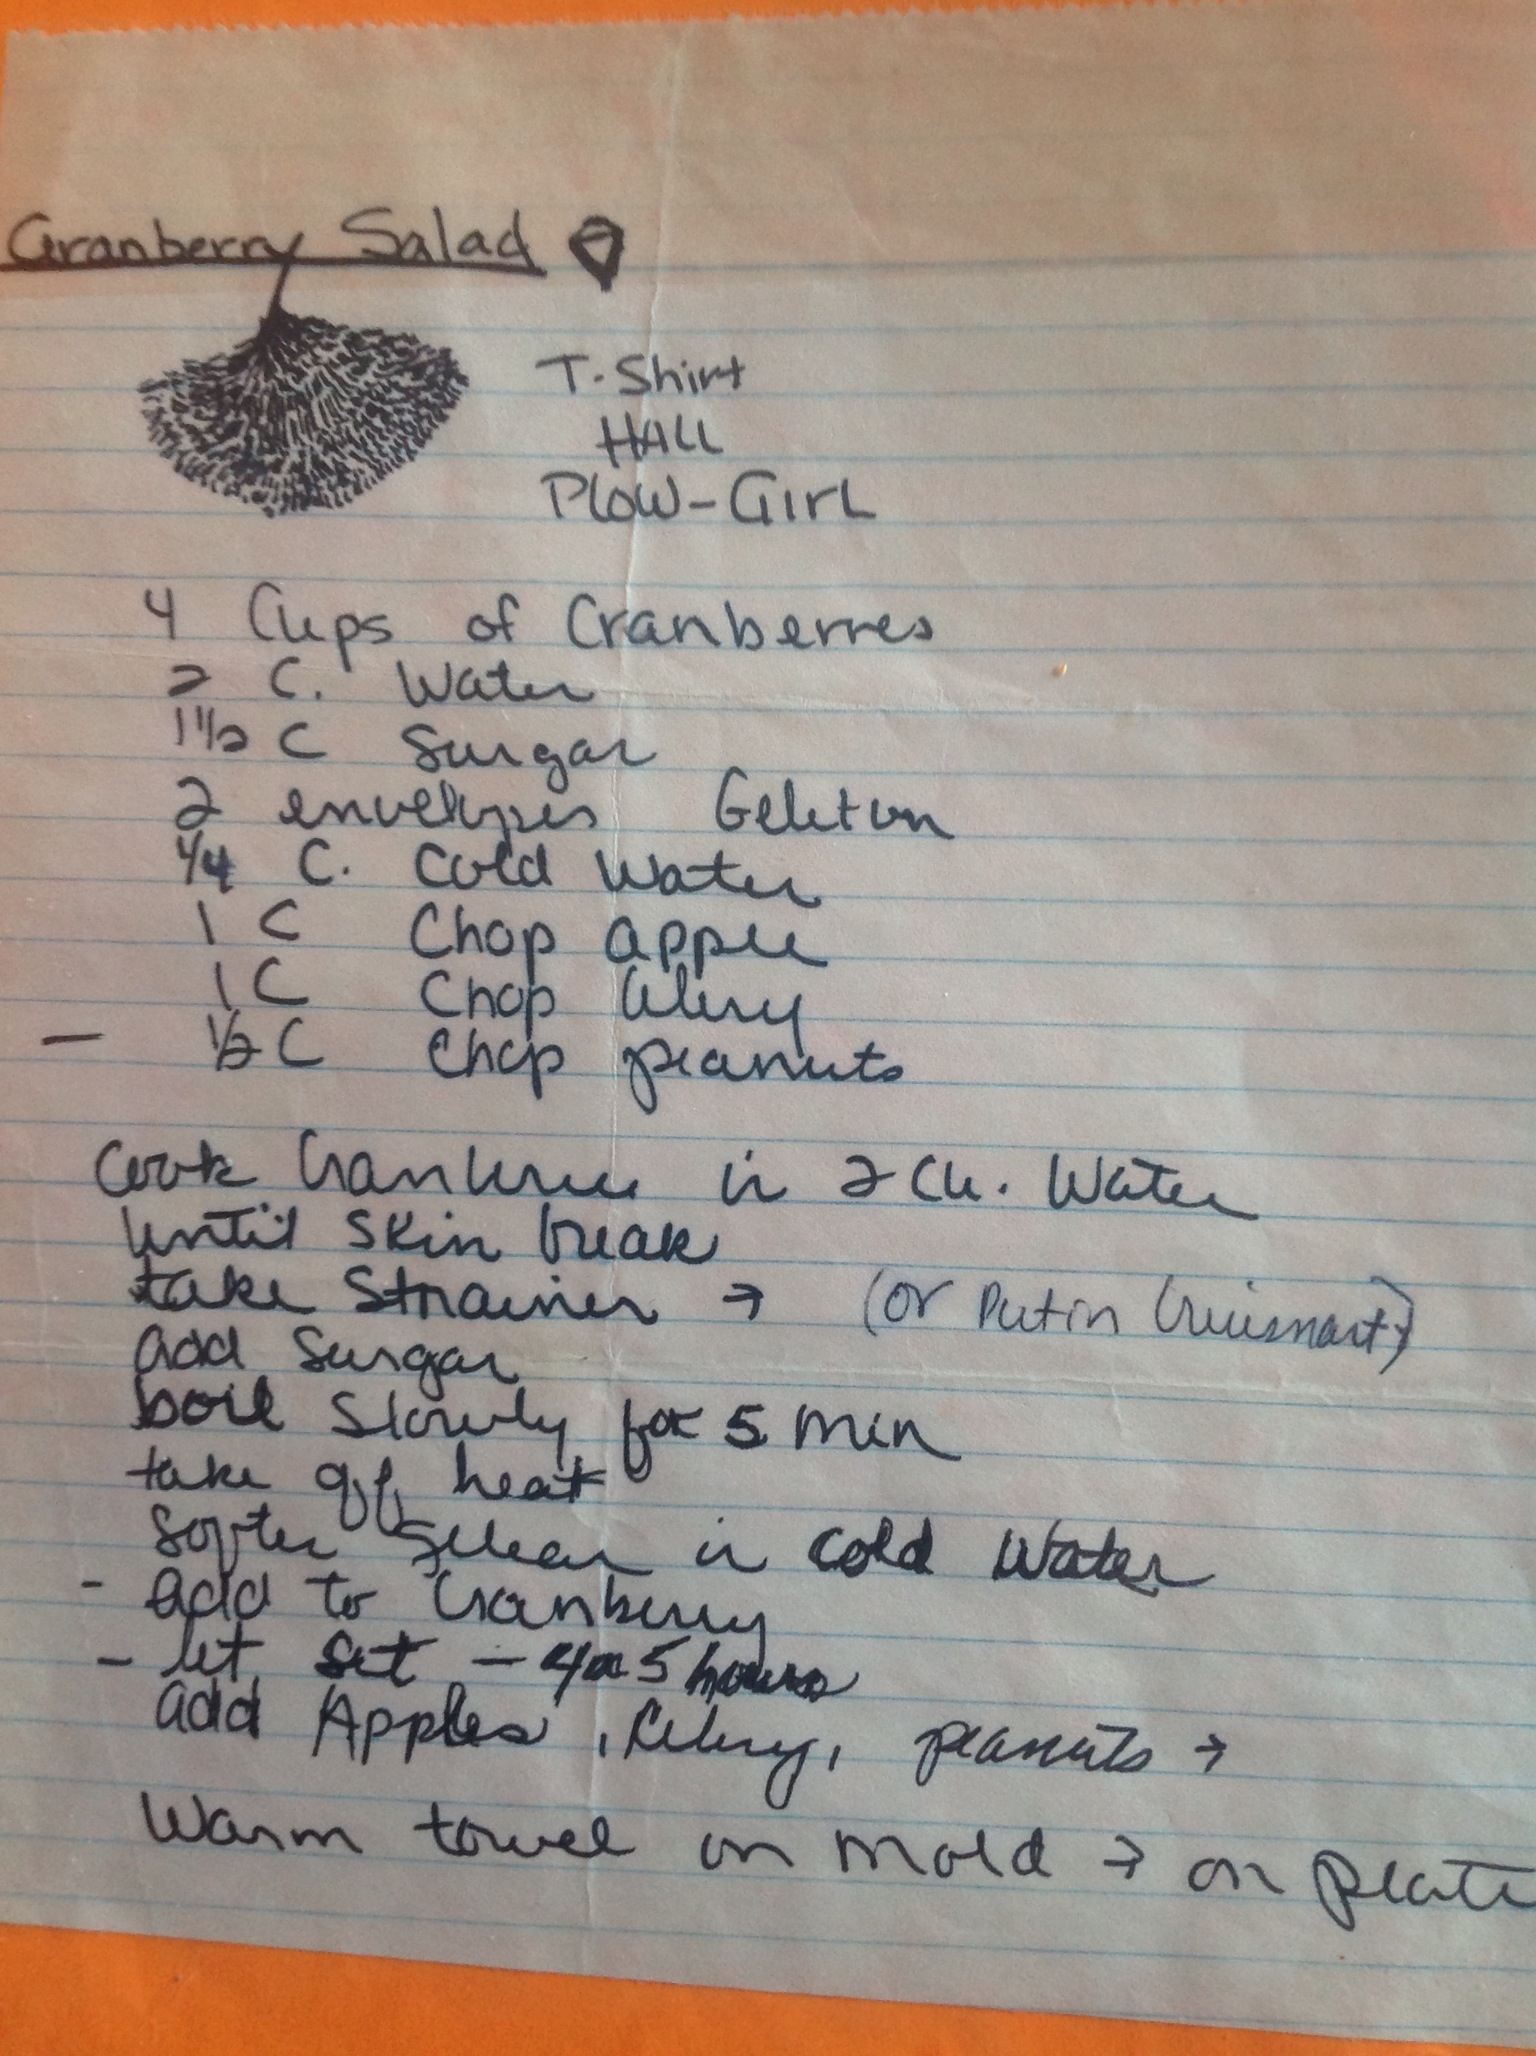 Cranberry Salad
T-Shirt
HALL
PLOW-GIRL
4 Cups of Cranberres
2 C. Water
1 1/2 C Surgar
2 envelopes Geletun
1/4 C. Cold Water
1 C Chop apple
1 C Chop Celery
- 1/2 C Chop peanuts
Cook Cranberries in 2 Cu. Water
until skin break
take Strainer → (or Put in Cuiisnart)
add Surgar
boil slowly for 5 min
take off heat
Softer in cold Water
- add to Cranberry
- let set - 4 or 5 hours
add Apples, Celery, peanuts →
Warm towel on mold → on plate